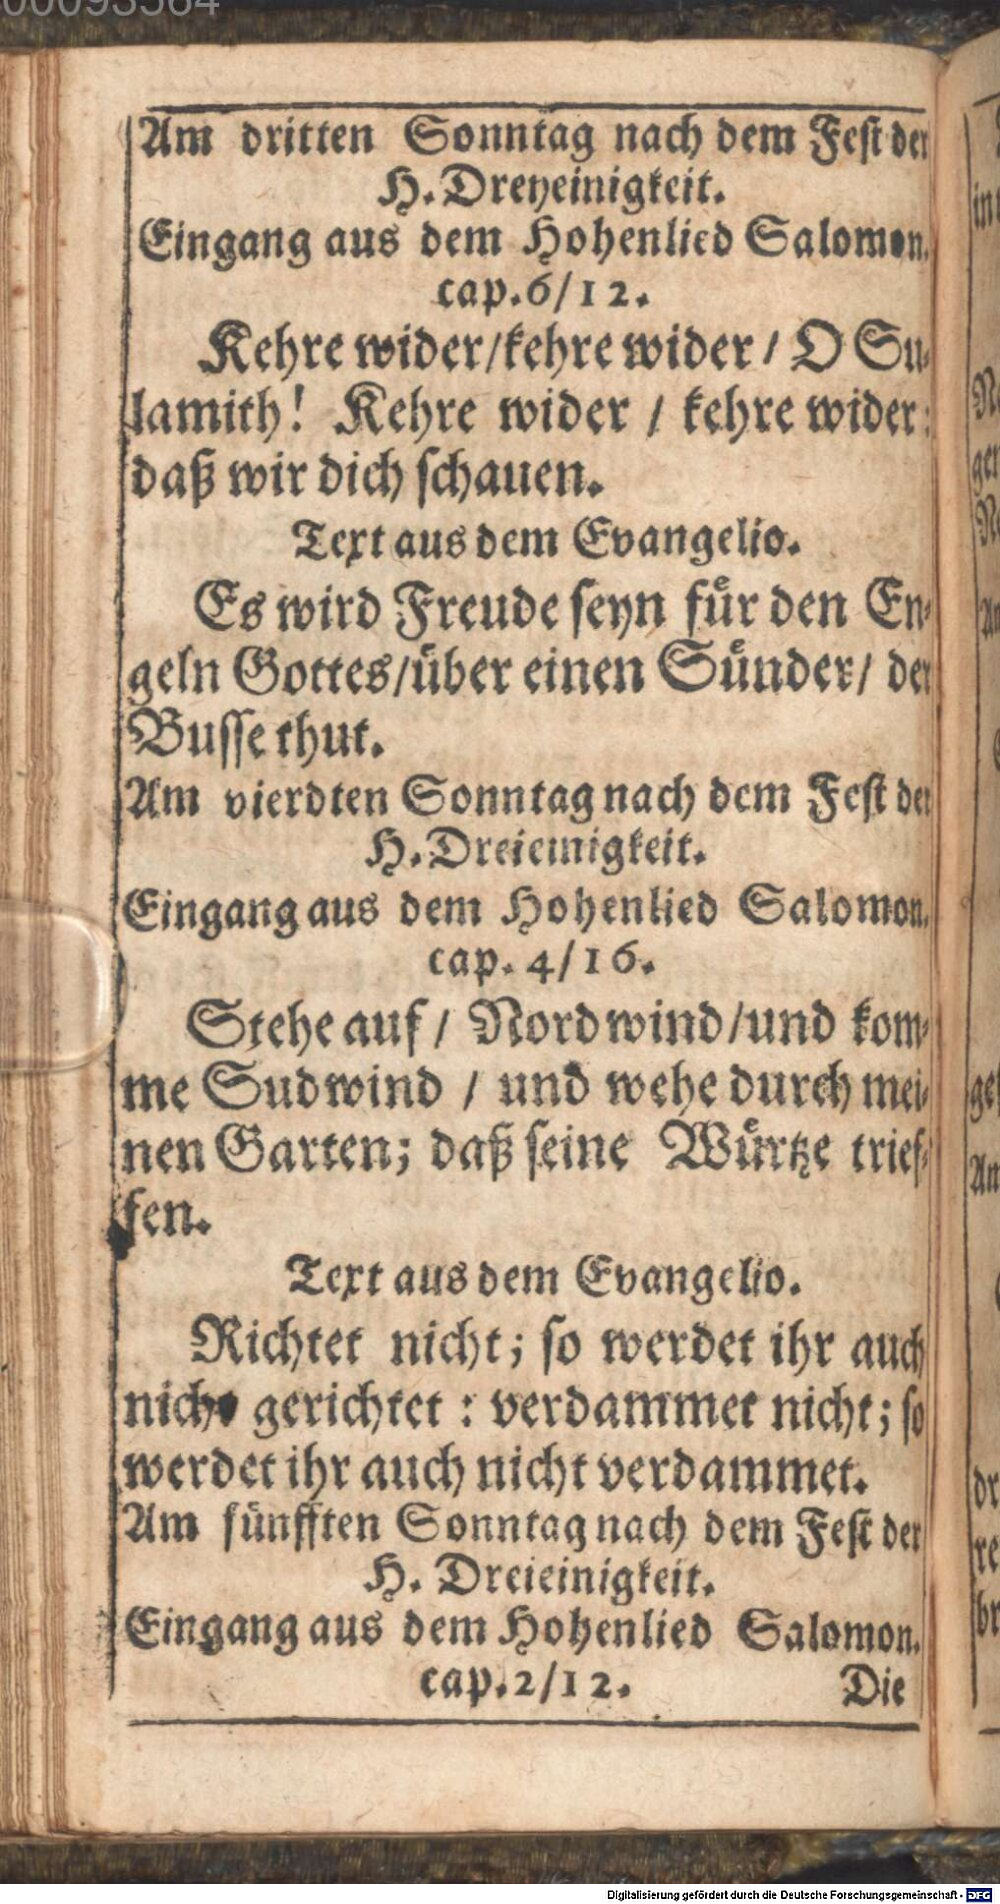 00093564
Am dritten Sonntag nach dem Fest der
H. Dreyeinigkeit.
Eingang aus dem Hohenlied Salomon.
cap. 6/12.
Kehre wider/kehre wider / O Su⸗
lamith! Kehre wider / kehre wider:
daß wir dich schauen.
Text aus dem Evangelio.
Es wird Freude seyn fuͤr den En⸗
geln Gottes/uͤber einen Suͤnder/ der
Busse thut.
Am vierdten Sonntag nach dem Fest der
H. Dreieinigkeit.
Eingang aus dem Hohenlied Salomon.
cap. 4/16.
Stehe auf / Nordwind/und kom⸗
me Sudwind / und wehe durch mei⸗
nen Garten; daß seine Wuͤrtze trief⸗
fen.
Text aus dem Evangelio.
Richtet nicht; so werdet ihr auch
nicht gerichtet : verdammet nicht; so
werdet ihr auch nicht verdammet.
Am fuͤnfften Sonntag nach dem Fest der
H. Dreieinigkeit.
Eingang aus dem Hohenlied Salomon.
cap. 2/12. Die
Digitalisierung gefördert durch die Deutsche Forschungsgemeinschaft - DFG